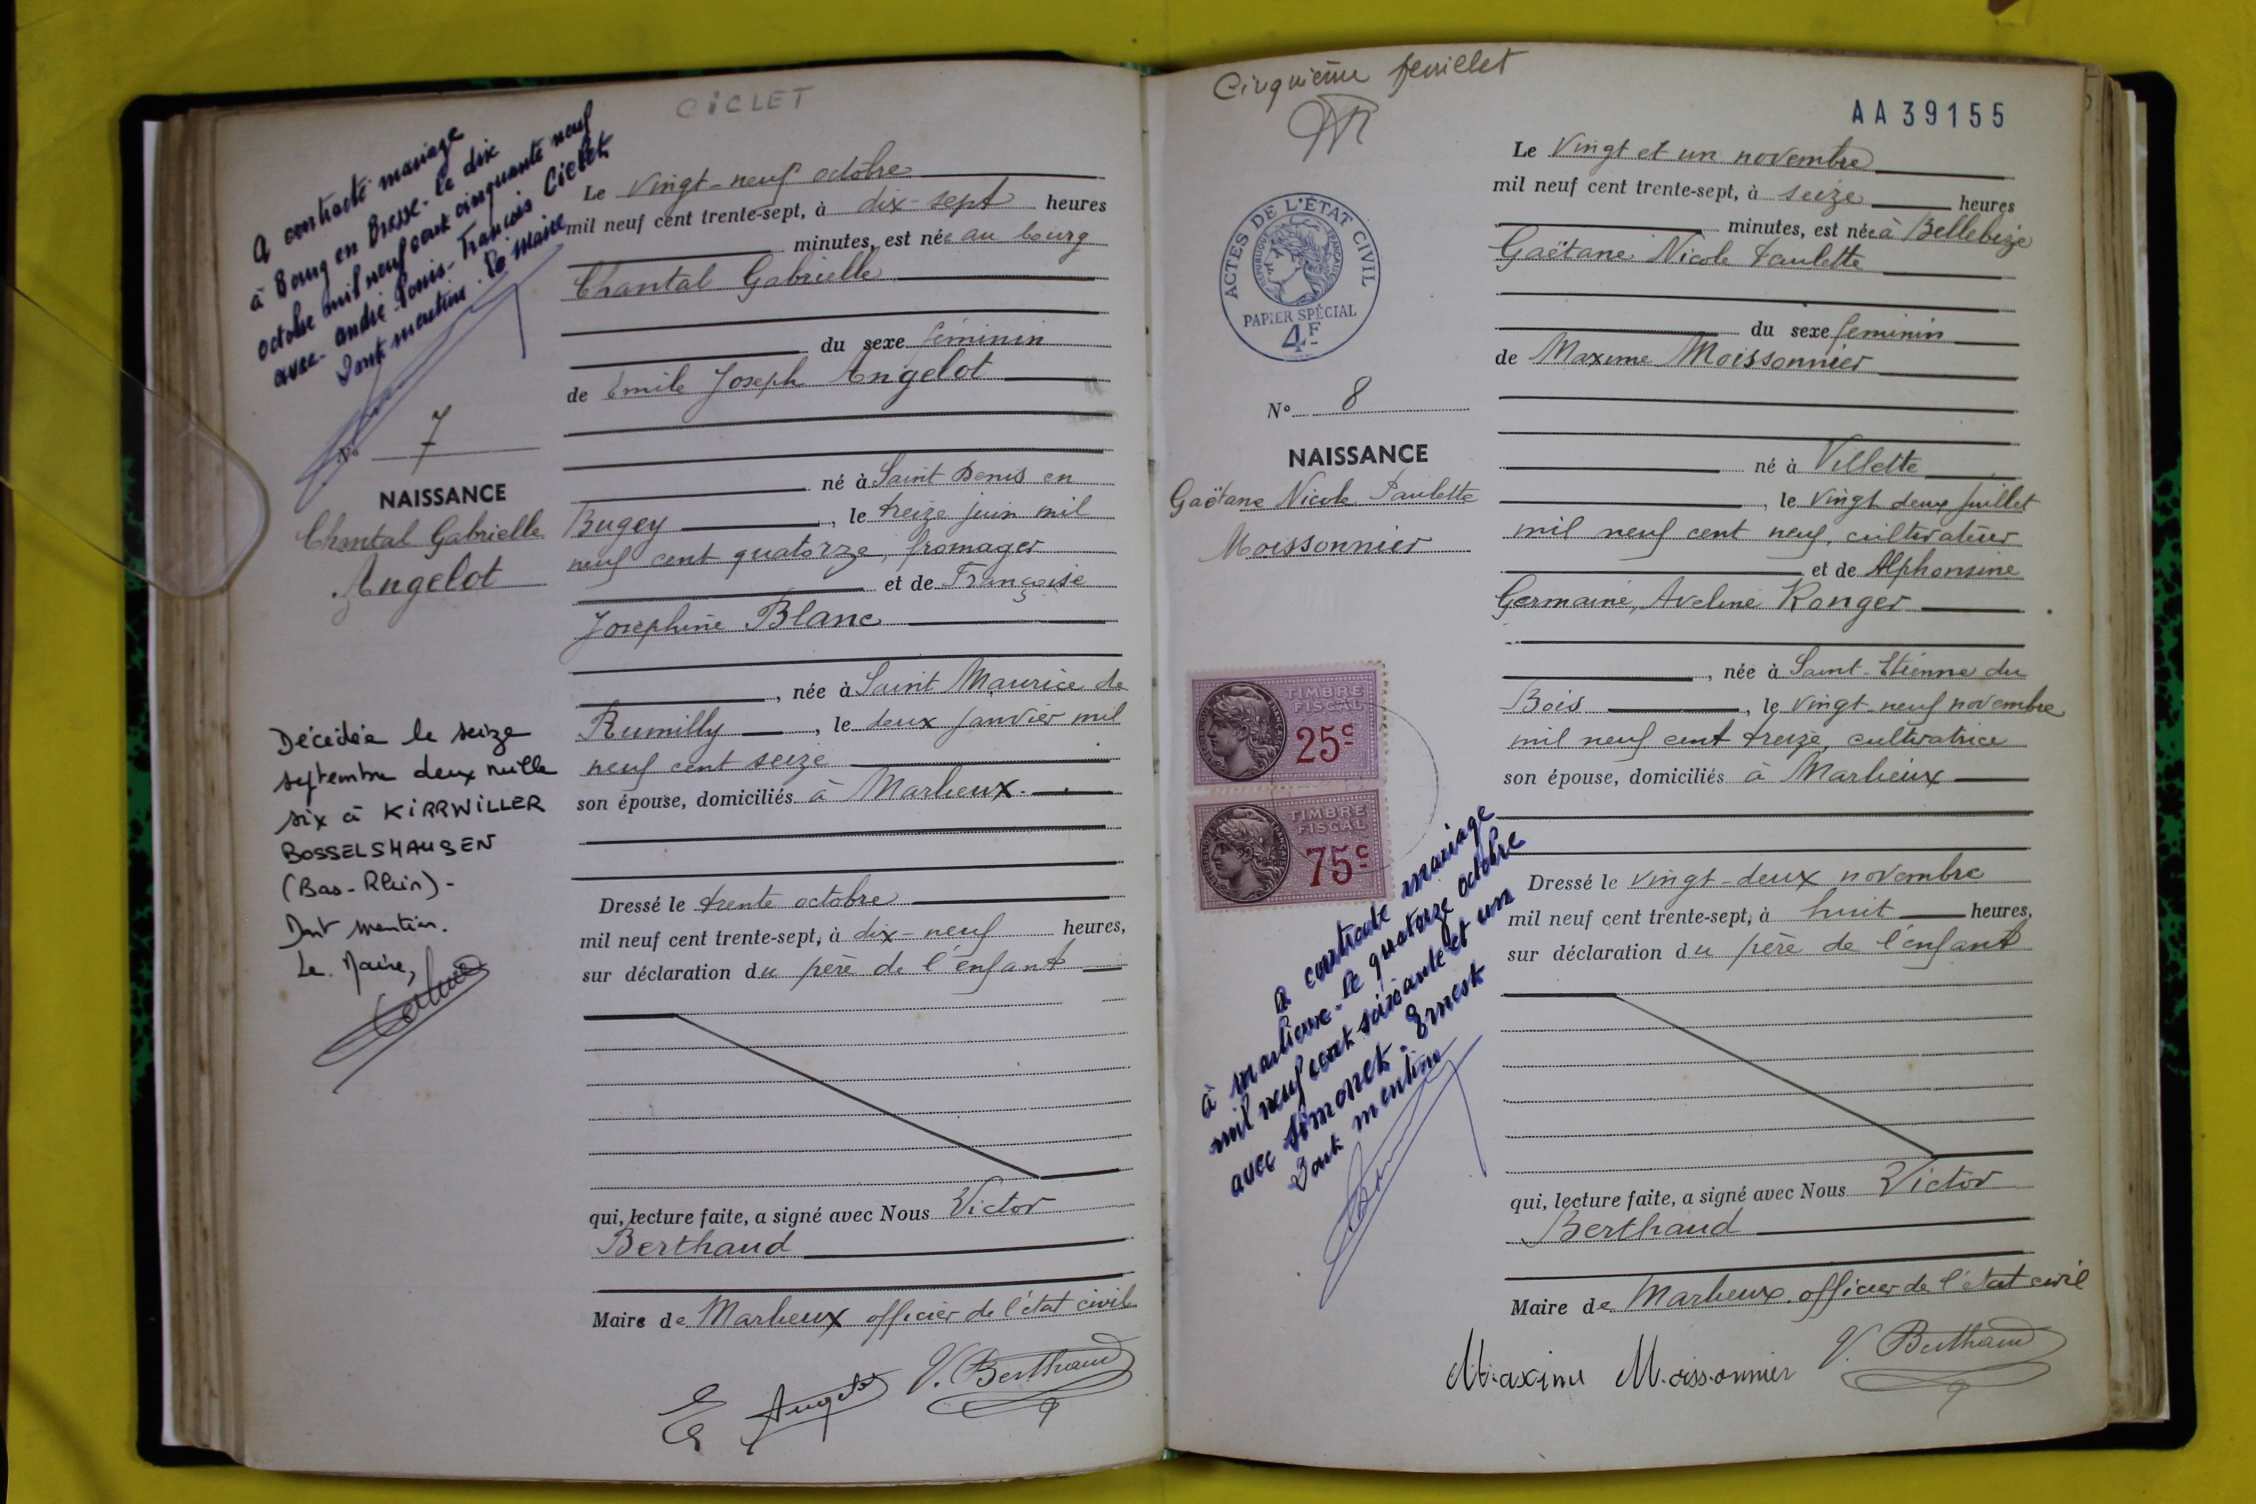 CICLET
A contracté mariage
à Bourg en Bresse - le dix
octobre mil neuf cent cinquante neuf
avec - André - Louis - François Ciclet
Dont mention. Le Maire
N° 7
NAISSANCE
Chantal Gabrielle
Angelot
Décédée le seize
septembre deux mille
six à KIRRWILLER
BOSSELSHAUSEN
(Bas-Rhin)-
Dont mention.
Le Maire,
Le vingt-neuf octobre
mil neuf cent trente-sept, à dix-sept heures
minutes, est née au bourg
Chantal Gabrielle
du sexe féminin
de Emile Joseph Angelot
né à Saint Denis en
Bugey, le treize juin mil
neuf cent quatorze, fromager
et de Françoise
Joséphine Blanc
, née à Saint Maurice de
Rumilly, le deux janvier mil
neuf cent seize
son épouse, domiciliés à Marlieux.
Dressé le trente octobre
mil neuf cent trente-sept, à dix-neuf heures,
sur déclaration du père de l'enfant
qui, lecture faite, a signé avec Nous Victor
Berthaud
Maire de Marlieux officier de l'état civil
E Angelot V. Berthaud
Cinquième feuillet
AA 39155
ACTES DE L'ÉTAT CIVIL
RÉPUBLIQUE FRANÇAISE
PAPIER SPÉCIAL
4F
N° 8
NAISSANCE
Gaëtane Nicole Paulette
Moissonnier
TIMBRE
FISCAL
25c
TIMBRE
FISCAL
75c
A contracté mariage
à Marlieux - le quatorze octobre
mil neuf cent soixante et un
avec Simonet - Ernest
Dont mention
Le vingt et un novembre
mil neuf cent trente-sept, à seize heures
minutes, est née à Bellebize
Gaëtane Nicole Paulette
du sexe féminin
de Maxime Moissonnier
né à Villette
, le vingt deux juillet
mil neuf cent neuf, cultivateur
et de Alphonsine
Germaine, Aveline Ronger
, née à Saint-Etienne du
Bois, le vingt-neuf novembre
mil neuf cent treize, cultivatrice
son épouse, domiciliés à Marlieux
Dressé le vingt-deux novembre
mil neuf cent trente-sept, à huit heures,
sur déclaration du père de l'enfant
qui, lecture faite, a signé avec Nous Victor
Berthaud
Maire de Marlieux, officier de l'état civil
Maxime Moissonnier V. Berthaud